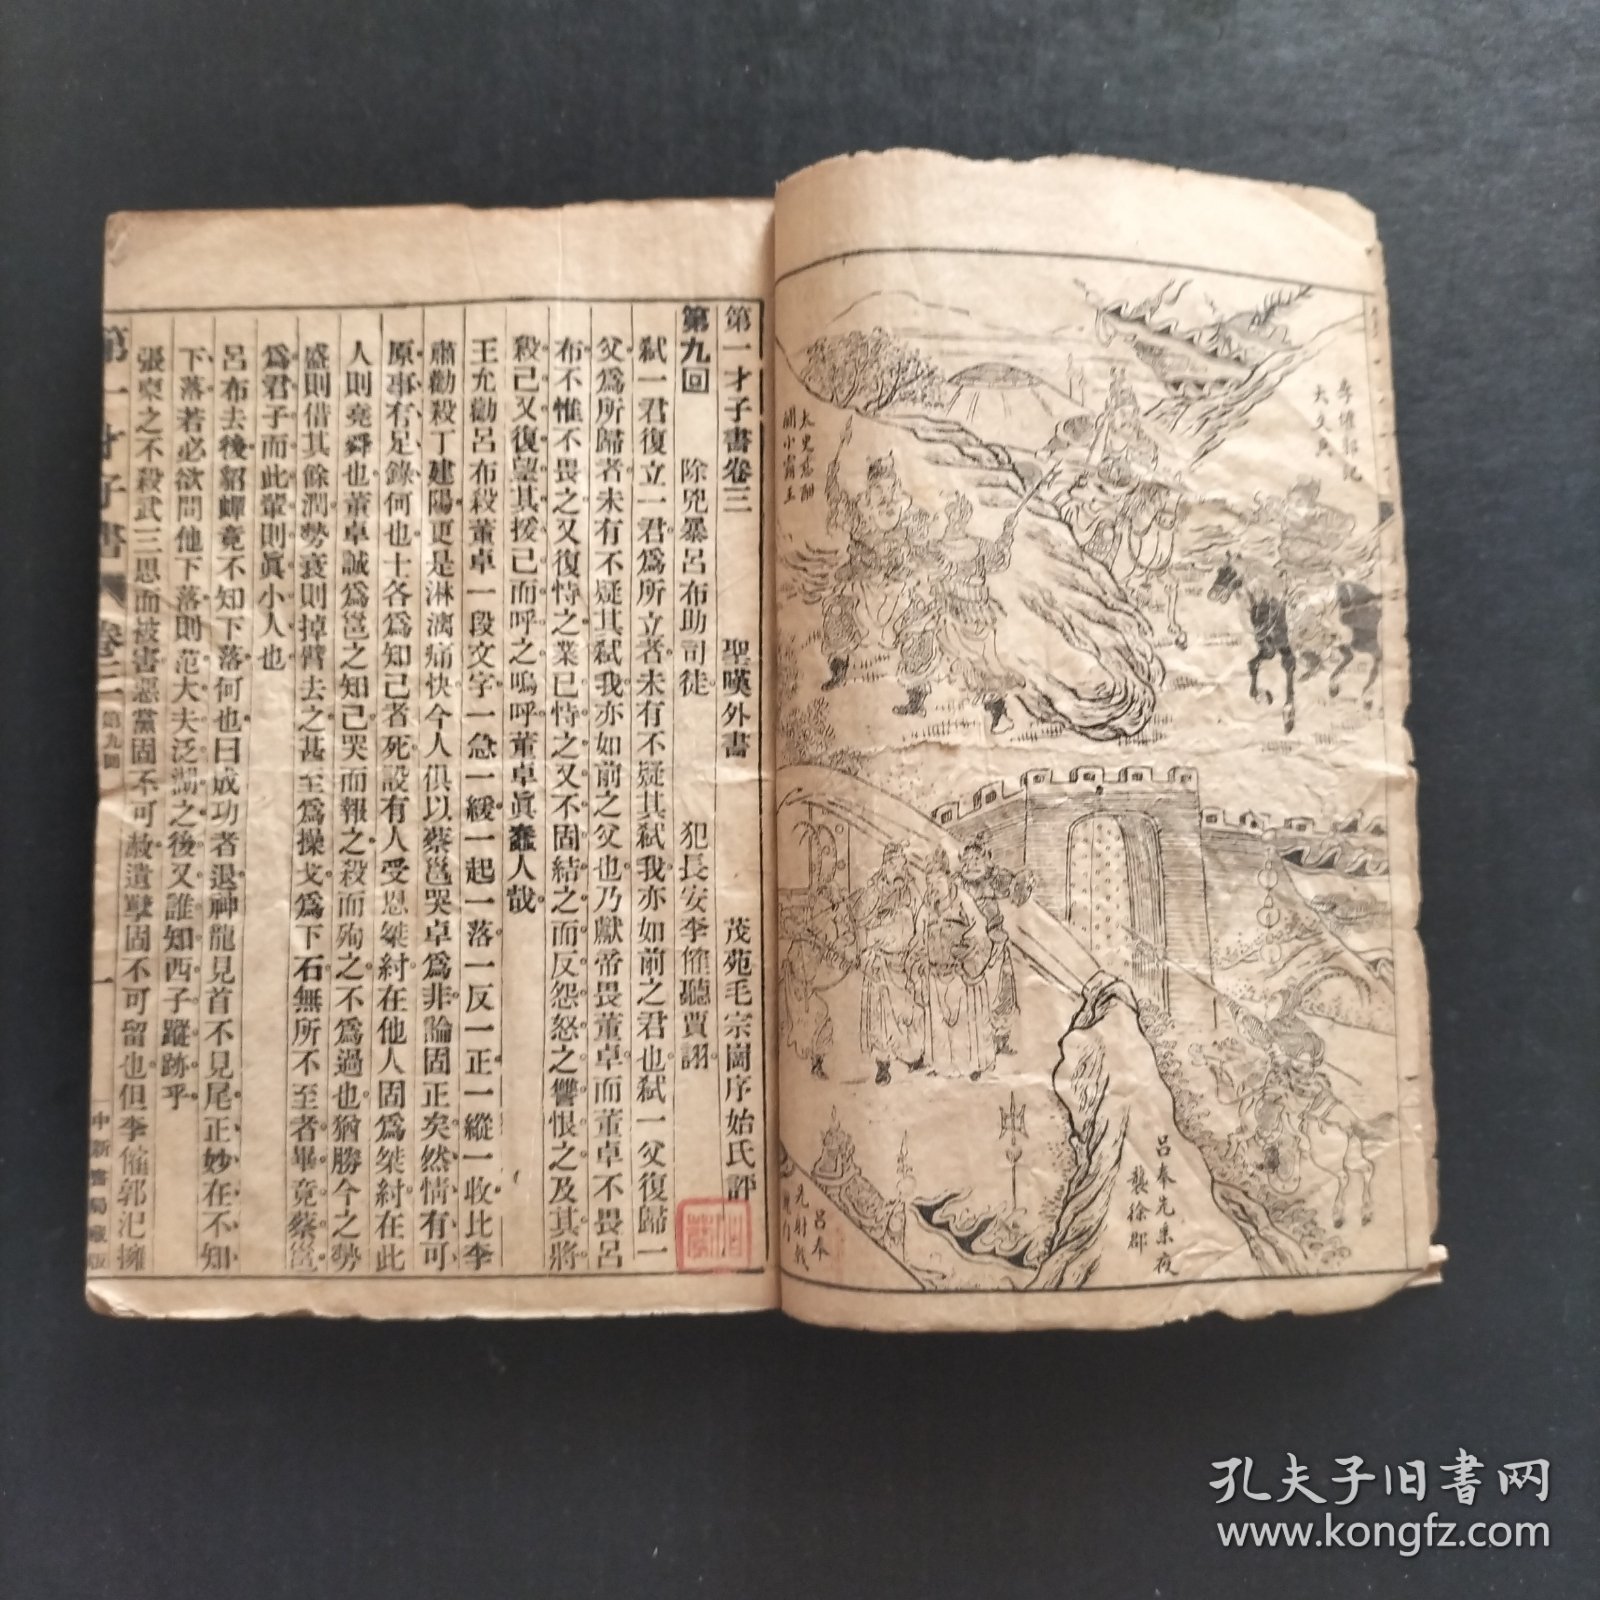 李傕郭汜
大交兵
太史慈酣
鬬小霸王
呂奉先乘夜
襲徐郡
呂奉
先射戟
第一才子書卷三　聖嘆外書　茂苑毛宗崗序始氏評
第九回　除兇暴呂布助司徒　犯長安李傕聽賈詡
弒一君復立一君爲所立者未有不疑其弒我亦如前之君也弒一父復歸一
父爲所歸者未有不疑其弒我亦如前之父也乃獻帝畏董卓而董卓不畏呂
布不惟不畏之又復恃之業已恃之又不固結之而反怨怒之讐恨之及其將
殺己又復望其援己而呼之嗚呼董卓眞蠢人哉
王允勸呂布殺董卓一段文字一急一緩一起一落一反一正一縱一收比李
肅勸殺丁建陽更是淋漓痛快今人俱以蔡邕哭卓爲非論固正矣然情有可
原事有足錄何也士各爲知己者死設有人受恩桀紂在他人固爲桀紂在此
人則堯舜也董卓誠爲邕之知己哭而報之殺而殉之不爲過也猶勝今之勢
盛則借其餘潤勢衰則掉臂去之甚至爲操戈爲下石無所不至者畢竟蔡邕
爲君子而此輩則眞小人也
呂布去後貂蟬竟不知下落何也曰成功者退神龍見首不見尾正妙在不知
下落若必欲問他下落則范大夫泛湖之後又誰知西子蹤跡乎
張柬之不殺武三思而被害惡黨固不可赦遺孽固不可留也但李傕郭汜擁
第一才子書　卷三　第九回　一　中新書局藏版
孔夫子旧書网
www.kongfz.com